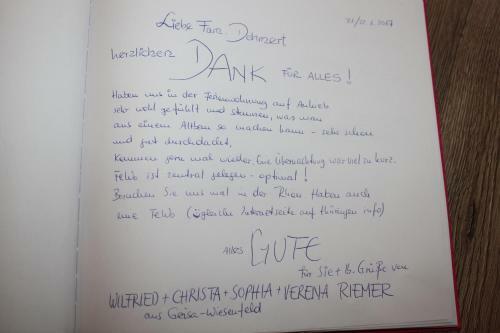 Liebe Fam. Dehnert
herzlichen
DANK FÜR ALLES!
Haben uns in der Ferienwohnung auf Anhieb
sehr wohl gefühlt und staunen, was man
aus einem Altbau so machen kann - sehr schön
und gut durchdacht.
Kommen gern mal wieder. Eine Übernachtung war viel zu kurz.
FeWo ist zentral gelegen - optimal!
Besuchen Sie uns mal in der Rhön Haben auch
eine FeWo ( Internetseite auf thüringen info)
Alles GUTE
für Sie + lb. Grüße von
WILFRIED + CHRISTA + SOPHIA + VERENA RIEMER
aus Geisa-Wiesenfeld